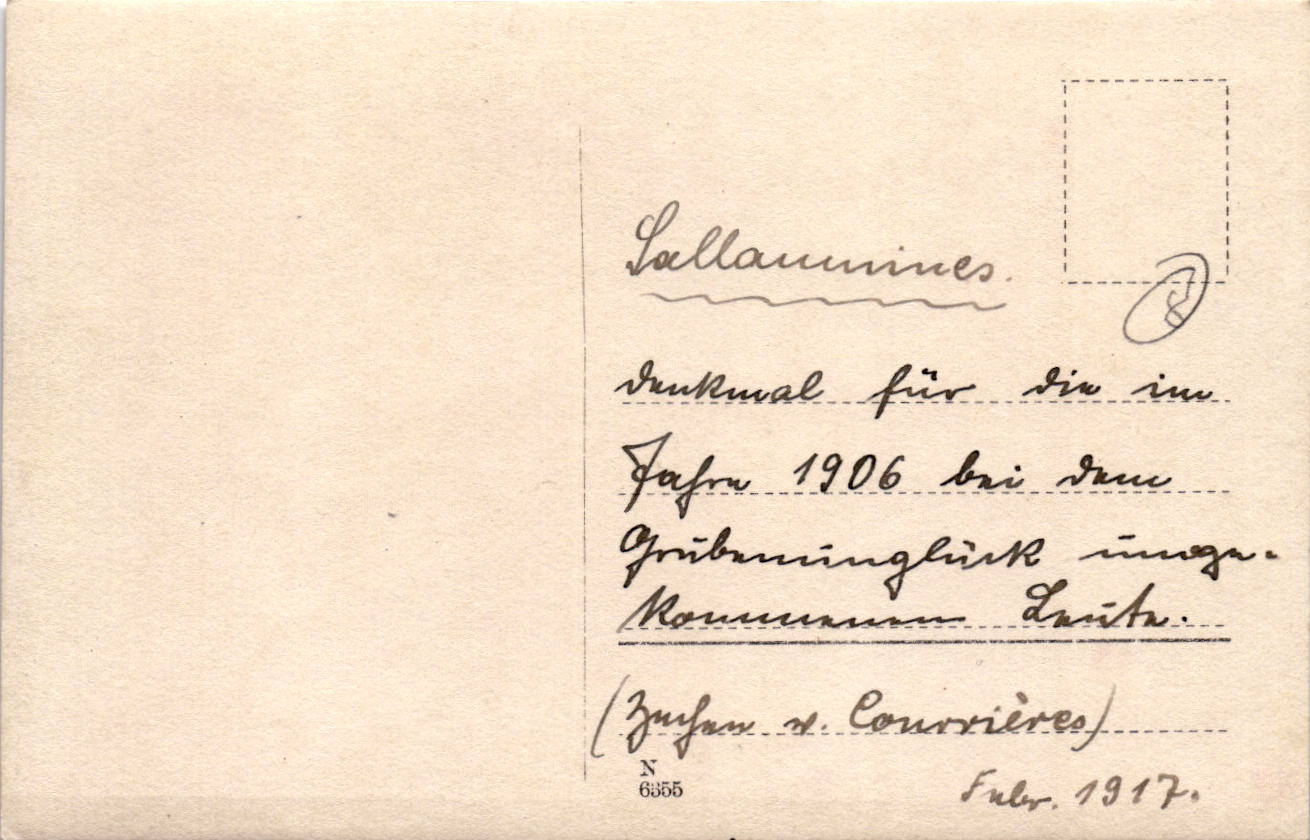 Sallaumines.
Denkmal für die im
Jahre 1906 bei dem
Grubenunglück umge-
kommenen Leute.
(Zechen v. Courrières)
N
6355
Febr. 1917.